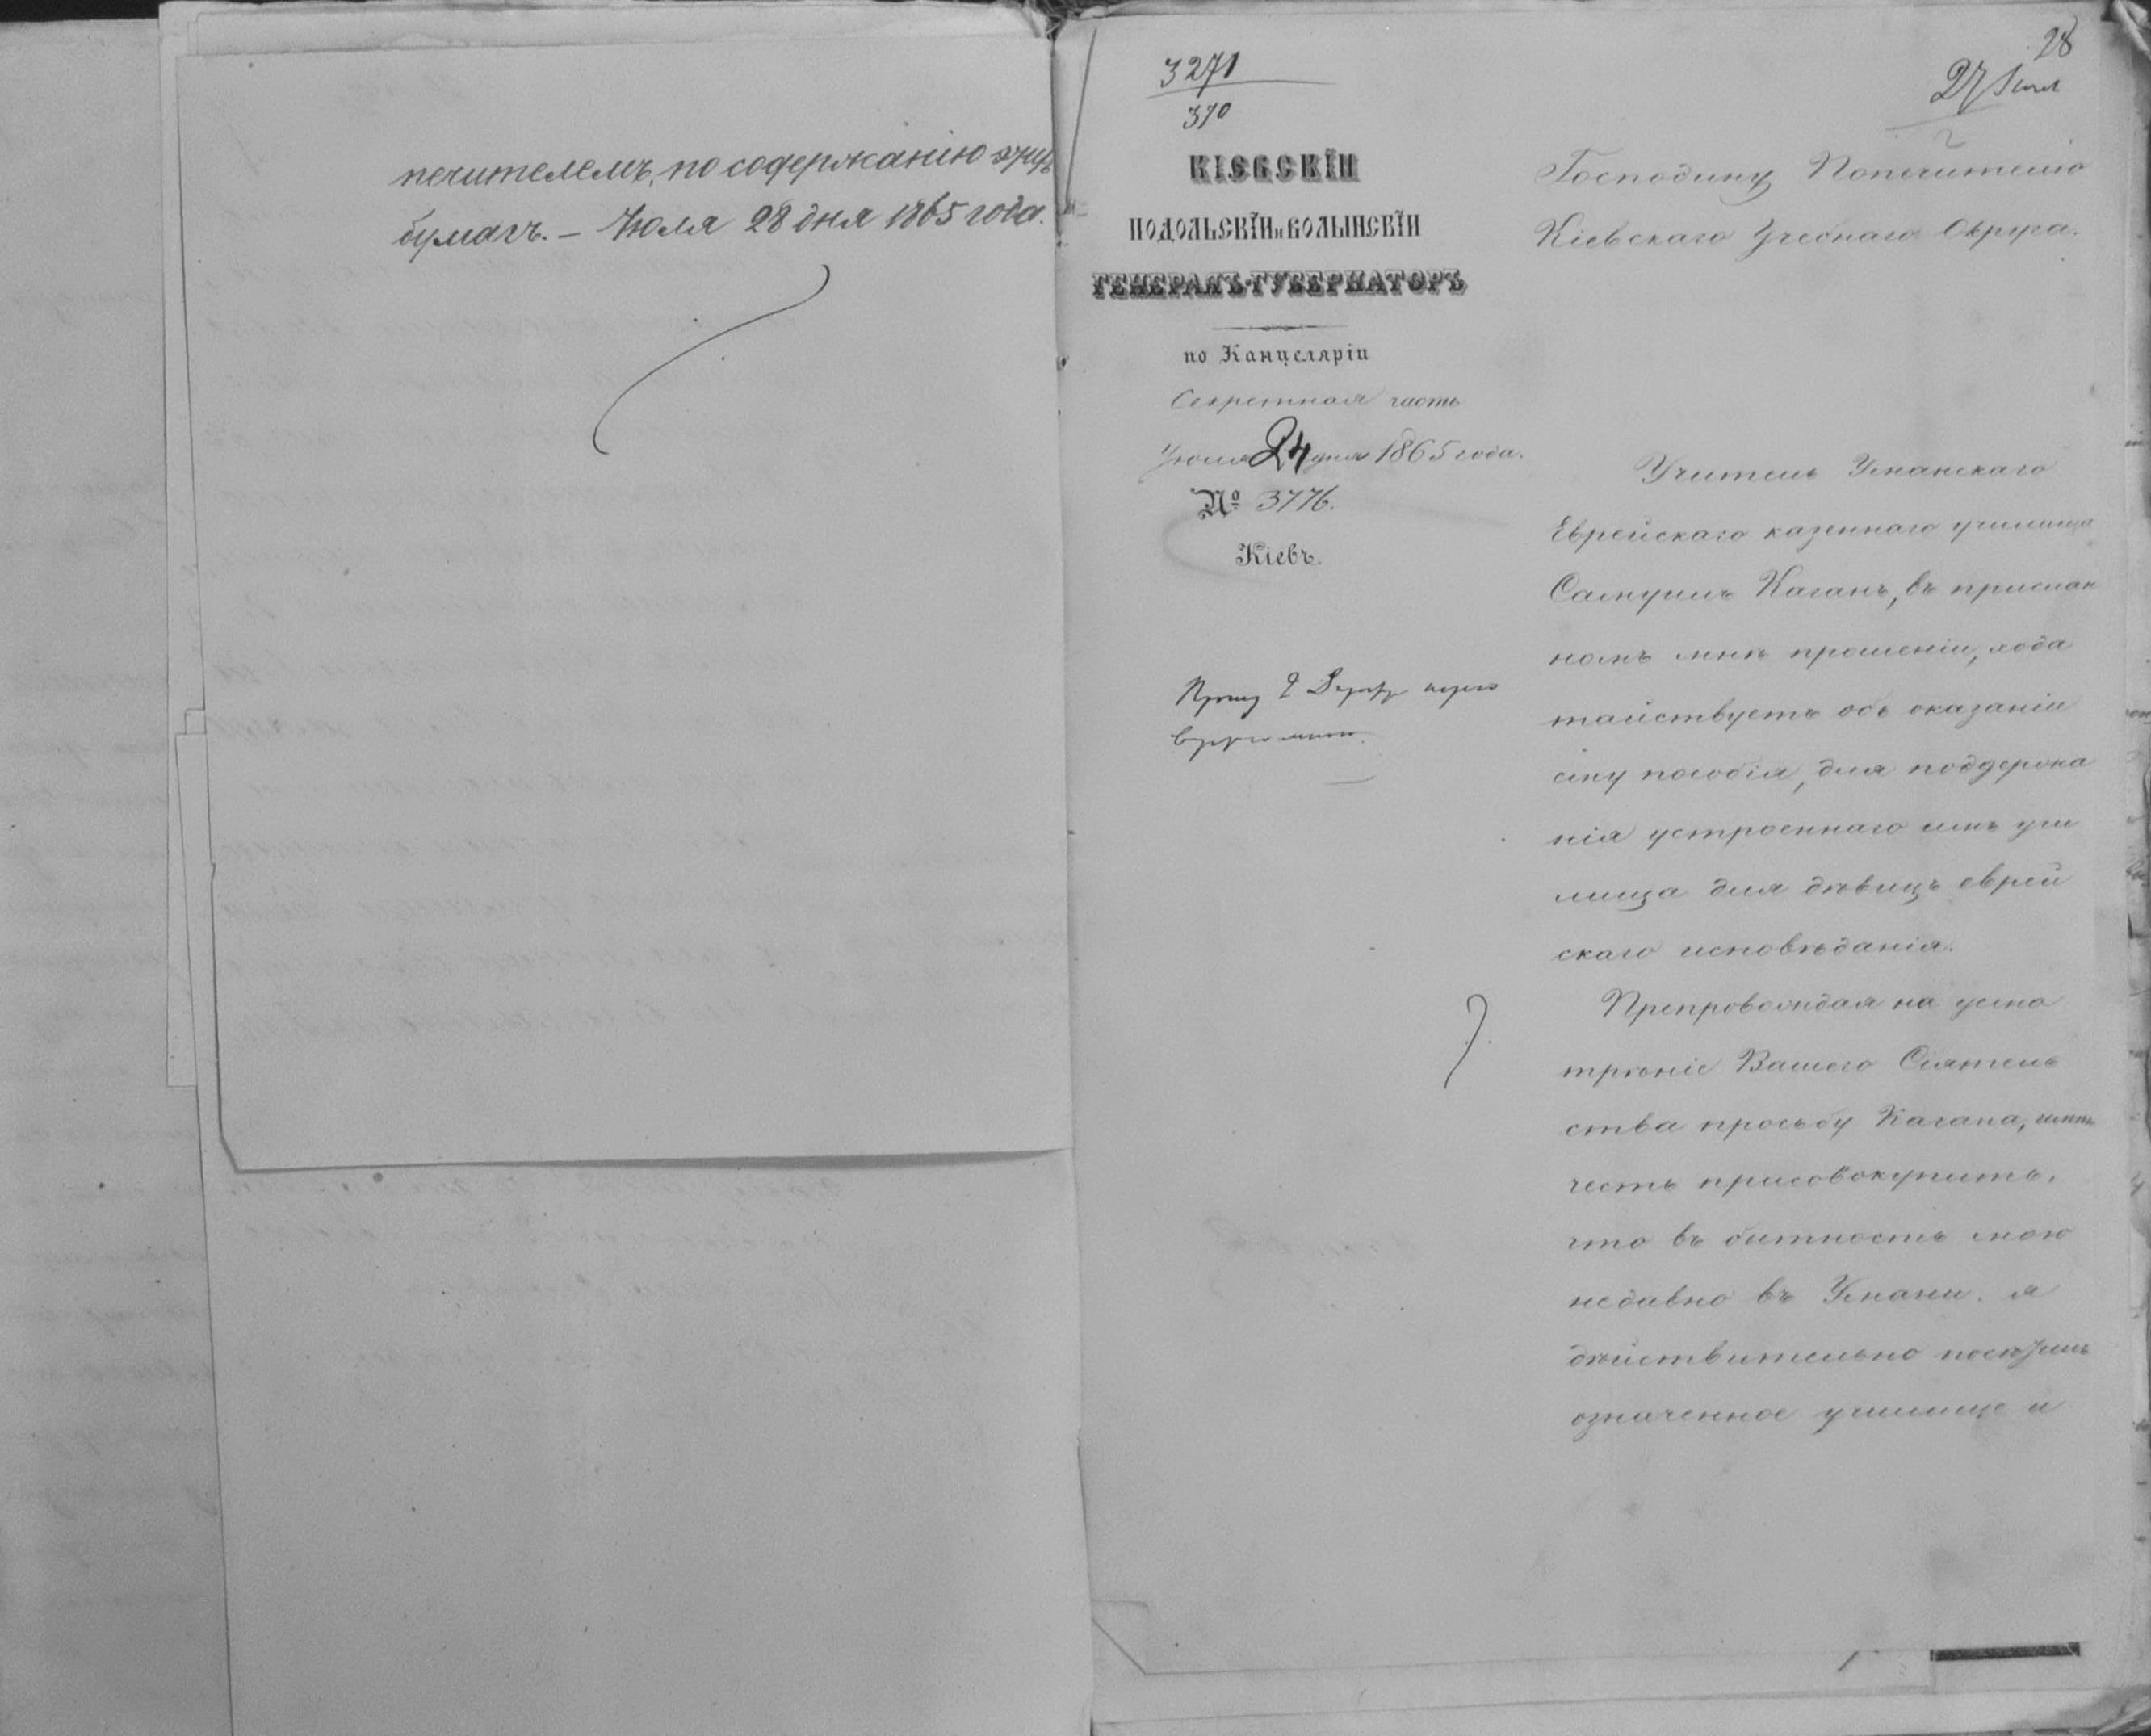 печителемъ, по содержанію этихъ
бумагъ. – Іюля 28 дня 1865 года.
28
3271
370
27 Іюля
КІЕВСКІЙ
ПОДОЛЬСКІЙ и ВОЛЫНСКІЙ
ГЕНЕРАЛЪ-ГУБЕРНАТОРЪ
по Канцеляріи
Секретная часть
Іюля 24 дня 1865 года.
№ 3776.
Кіевъ
Прошу
Господину Попечителю
Кіевскаго Учебнаго Округа.
Учитель Уманскаго
Еврейскаго казеннаго училища
Самуилъ Каганъ, въ прислан
номъ мнѣ прошеніи, хода
тайствуетъ объ оказаніи
ему пособія, для поддержа
нія устроеннаго имъ учи
лища для дѣвицъ еврей
скаго исповѣданія.
Препровождая на усмо
трѣніе Вашего Сіятель
ства просьбу Кагана, имѣю
честь присовокупить,
что въ бытность мою
недавно въ Умани, я
дѣйствительно посѣтилъ
означенное училище и